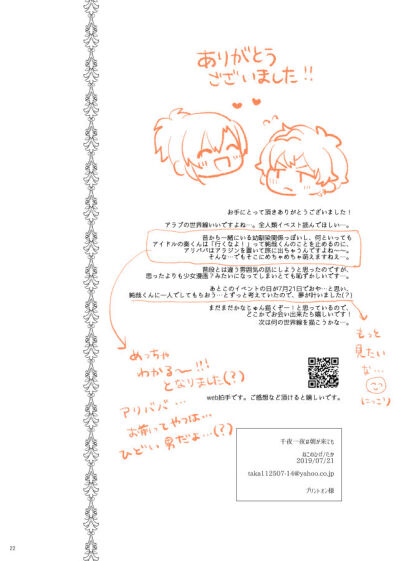 ありがとう
ございました!!
お手にとって頂きありがとうございました！
アラブの世界線いいですよね…。全人類イベスト読んでほしい…。
昔から一緒にいる幼馴染関係っぽいし、何といっても
アイドルの奏くんは「行くなよ！」って純哉くんのことを止めるのに、
アリババはアラジンを置いて旅に出ちゃうんですよね～～。
そんな…でもそこにめちゃめちゃ萌えますねえ…。
普段とは違う雰囲気の話にしようと思ったのですが、
思ったよりも少女漫画？みたいになってしまいとても恥ずかしいです…。
あとこのイベントの日が7月21日でおや…と思い、
純哉くんに一人でしてもらおう…とずっと考えていたので、夢が叶いました(？)
まだまだかなじゅん描くぞー！と思っているので、
どこかでお会い出来たら嬉しいです！
次は何の世界線を描こうかな…。
めっちゃ
わかる～!!!
となりました(？)
アリババ…
お前ってやつは…
ひどい男だよ…(？)
もっと
見たい
な…
にっこり
web拍手です。ご感想など頂けると嬉しいです。
千夜一夜は朝が来ても
ねこのひげ/たか
2019/07/21
taka112507-14@yahoo.co.jp
プリントオン様
22